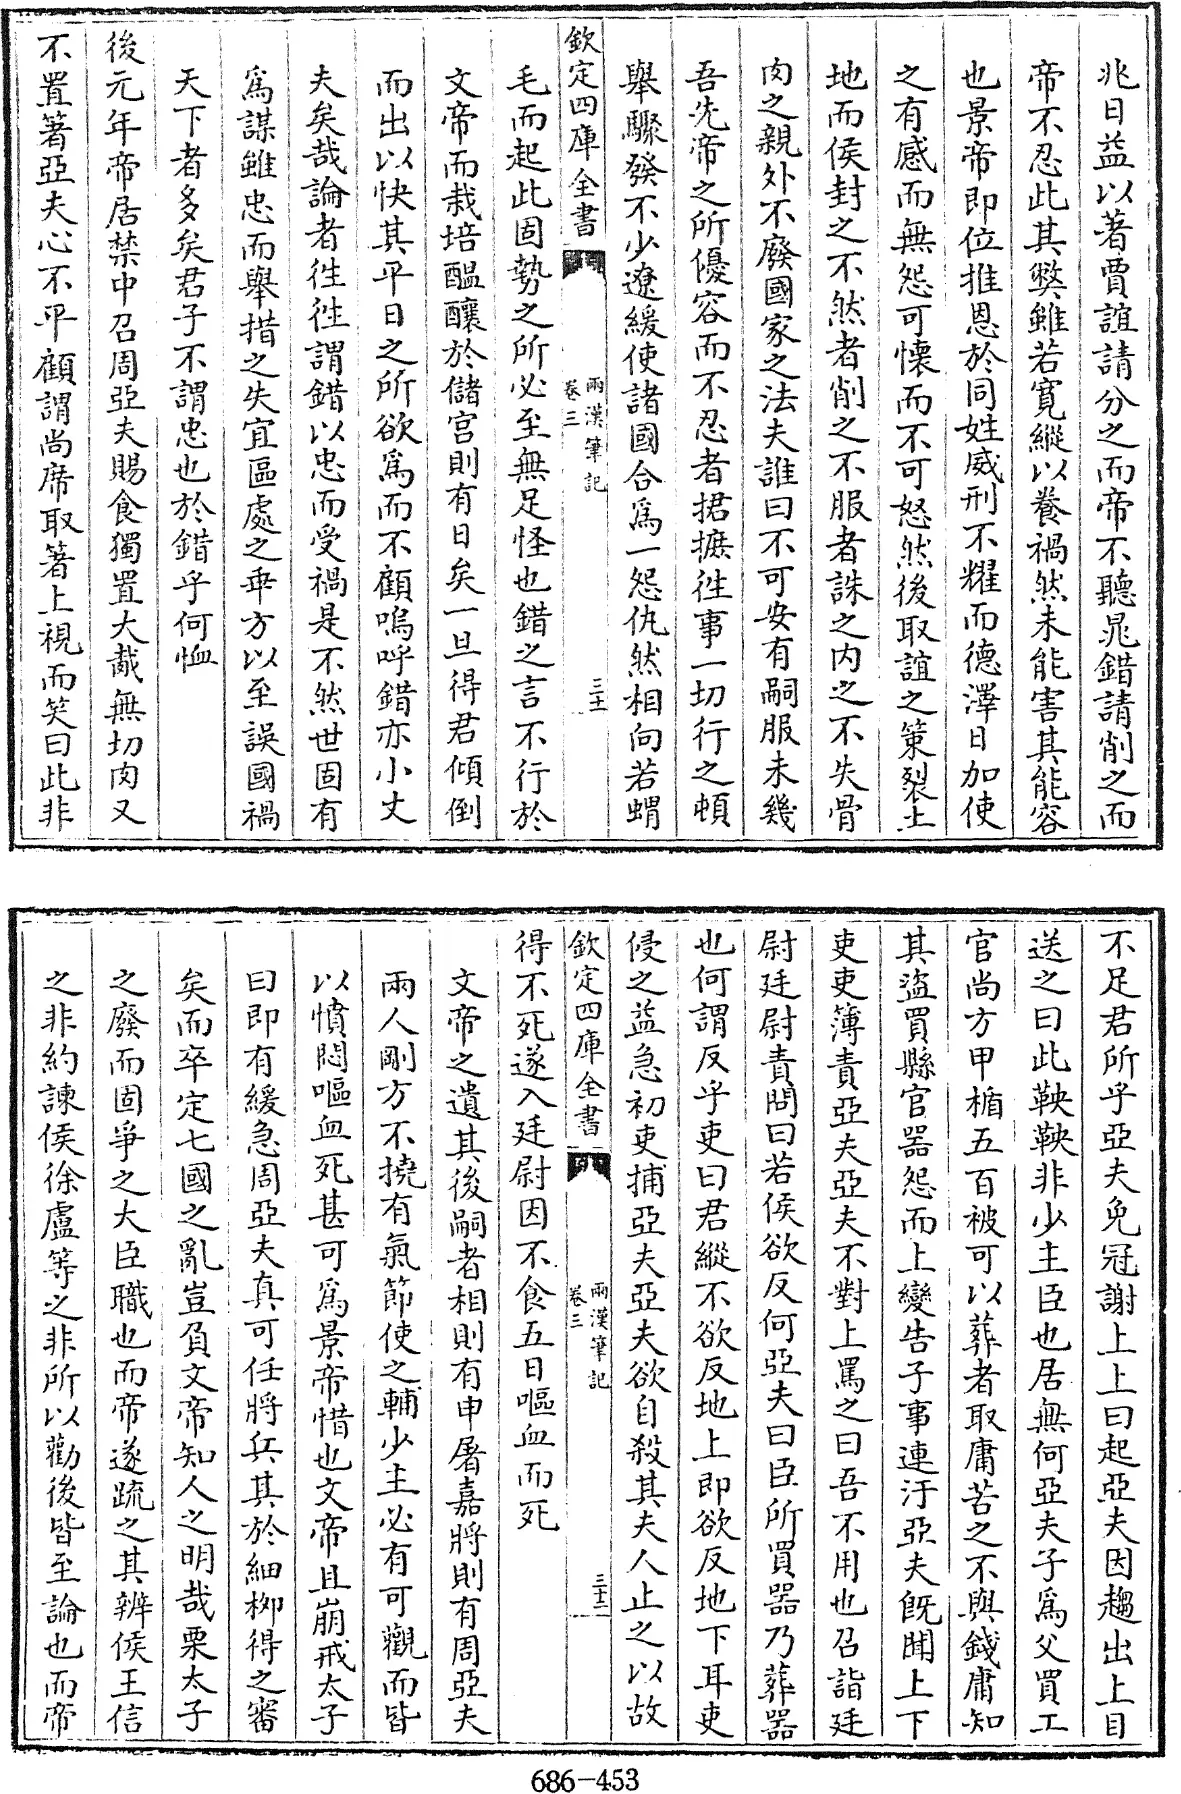 兆日益以著賈誼請分之而帝不聽晁錯請削之而
帝不忍此其獘雖若寬縱以養禍然未能害其能容
也景帝即位推恩於同姓威刑不耀而德澤日加使
之有感而無怨可懐而不可怒然後取誼之策裂土
地而侯封之不然者削之不服者誅之内之不失骨
肉之親外不廢國家之法夫誰曰不可安有嗣服未幾
吾先帝之所優容而不忍者捃摭徃事一切行之頓
舉驟發不少遼緩使諸國合爲一怨仇然相向若蝟
欽定四庫全書
兩漢筆記
卷三
三十一
毛而起此固勢之所必至無足怪也錯之言不行於
文帝而栽培醖釀於儲宫則有日矣一旦得君傾倒
而出以快其平日之所欲爲而不顧嗚呼錯亦小丈
夫矣哉論者徃徃謂錯以忠而受禍是不然世固有
爲謀雖忠而舉措之失宜區處之乖方以至誤國禍
天下者多矣君子不謂忠也於錯乎何恤
後元年帝居禁中召周亞夫賜食獨置大胾無切肉又
不置箸亞夫心不平顧謂尚席取箸上視而笑曰此非
不足君所乎亞夫免冠謝上上曰起亞夫因趨出上目
送之曰此鞅鞅非少主臣也居無何亞夫子爲父買工
官尚方甲楯五百被可以葬者取庸苦之不與錢庸知
其盜買縣官器怨而上變告子事連汙亞夫既聞上下
吏吏簿責亞夫亞夫不對上罵之曰吾不用也召詣廷
尉廷尉責問曰若侯欲反何亞夫曰臣所買器乃葬器
也何謂反乎吏曰君縱不欲反地上即欲反地下耳吏
侵之益急初吏捕亞夫亞夫欲自殺其夫人止之以故
欽定四庫全書
兩漢筆記
卷三
三十二
得不死遂入廷尉因不食五日嘔血而死
文帝之遺其後嗣者相則有申屠嘉將則有周亞夫
兩人剛方不撓有氣節使之輔少主必有可觀而皆
以憤悶嘔血死甚可爲景帝惜也文帝且崩戒太子
曰即有緩急周亞夫真可任將兵其於細柳得之審
矣而卒定七國之亂豈負文帝知人之明哉栗太子
之廢而固爭之大臣職也而帝遂疏之其辨侯王信
之非約諫侯徐盧等之非所以勸後皆至論也而帝
686-453